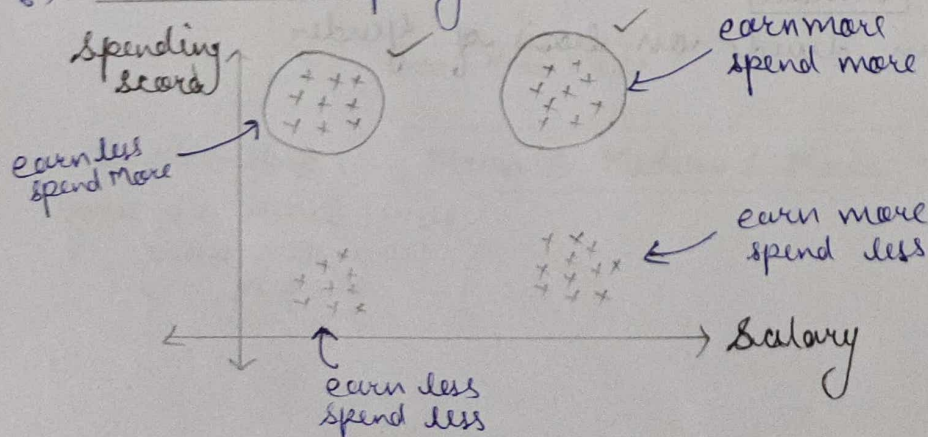 Spending
scord
earn less
spend More
earn more
spend more
earn more
spend less
Salary
earn less
spend less